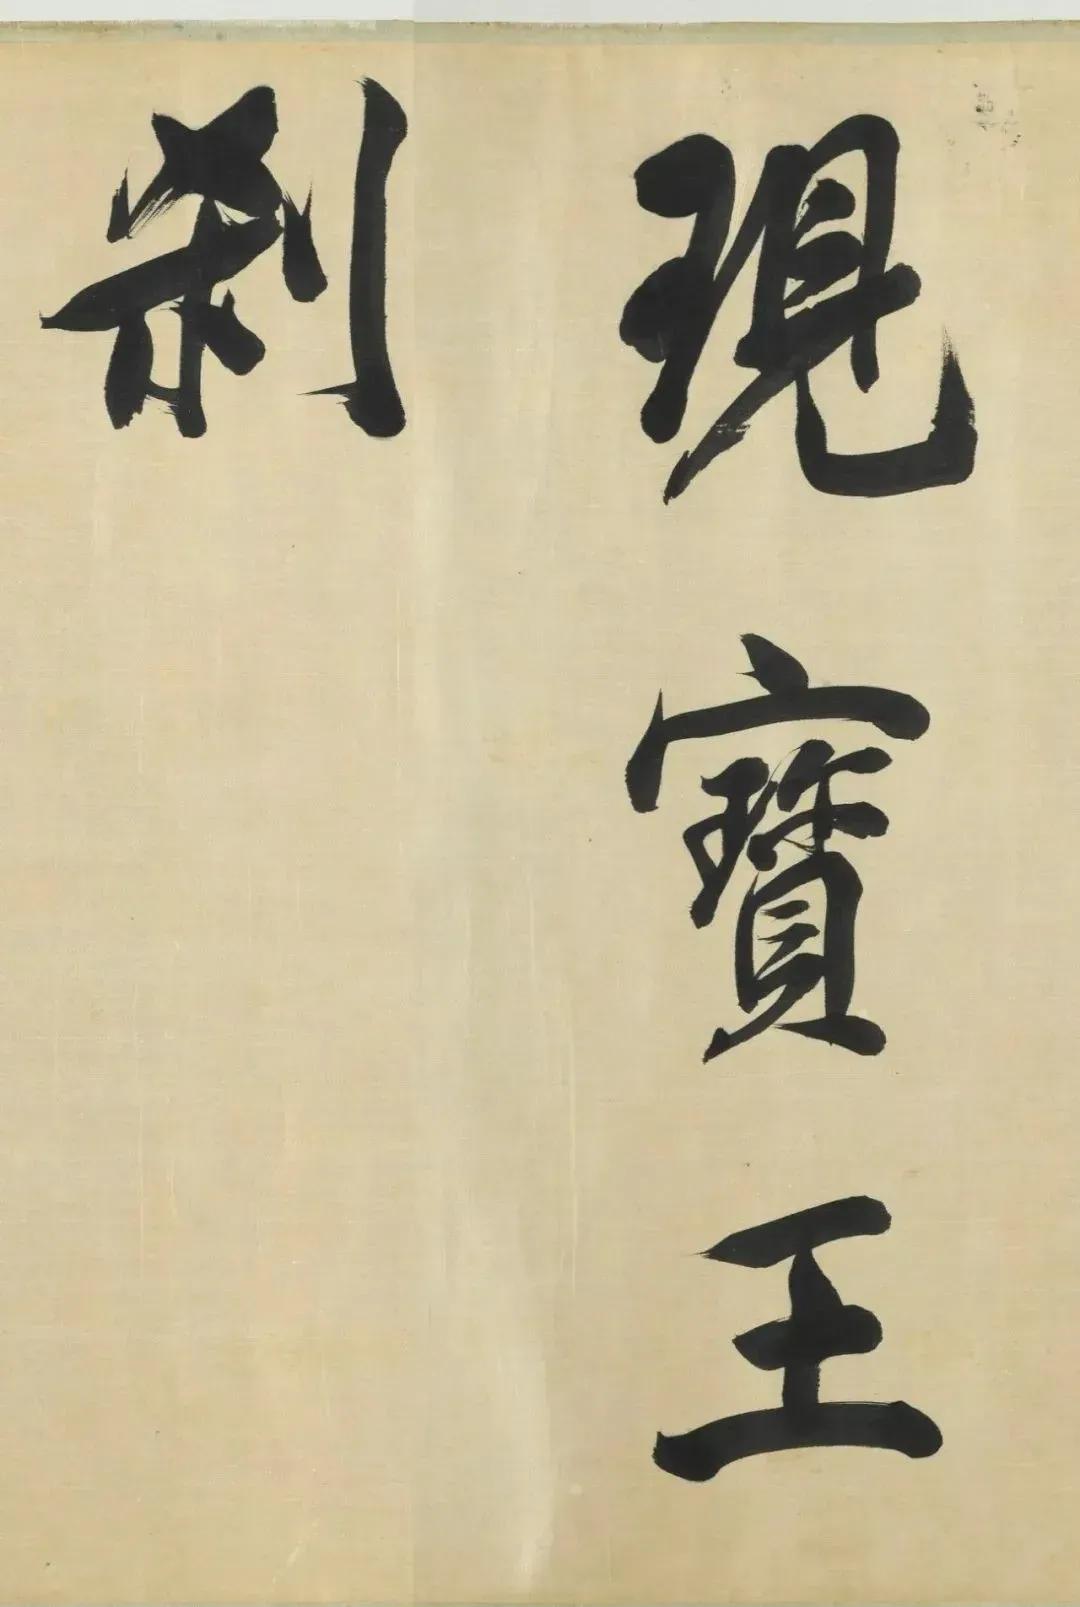 現寶王
刹